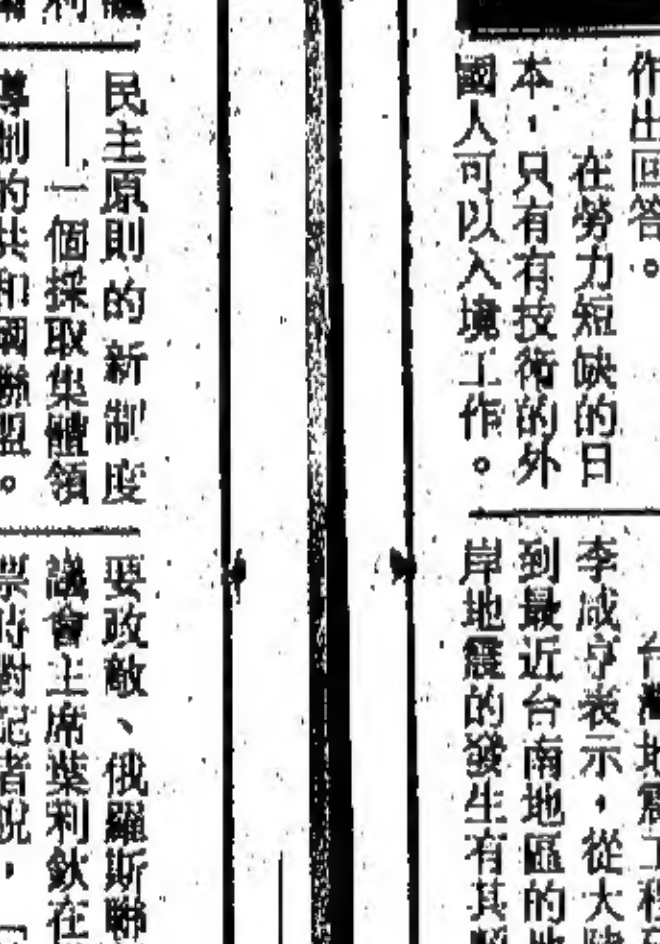 作出回答。
在勞力短缺的日
本，只有有技術的外
國人可以入境工作。
台灣地震工程
李咸亨表示，從大陸
到最近台南地區的地
岸地震的發生有其
民主原則的新制度
——一個採取集體領
導制的共和國聯盟。
要政敵、俄羅斯聯
議會主席葉利欽在
票時對記者說，「